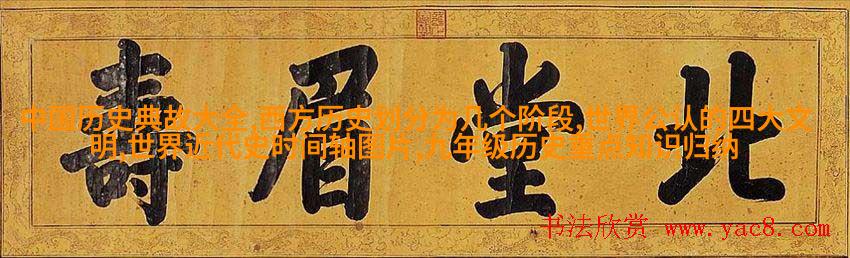 北堂眉壽
中国历史典故大全,西方历史划分为几个阶段,世界公认的四大文
明,世界近代史时间轴图片,九年级历史重点知识归纳
书法欣赏 www.yac8.com